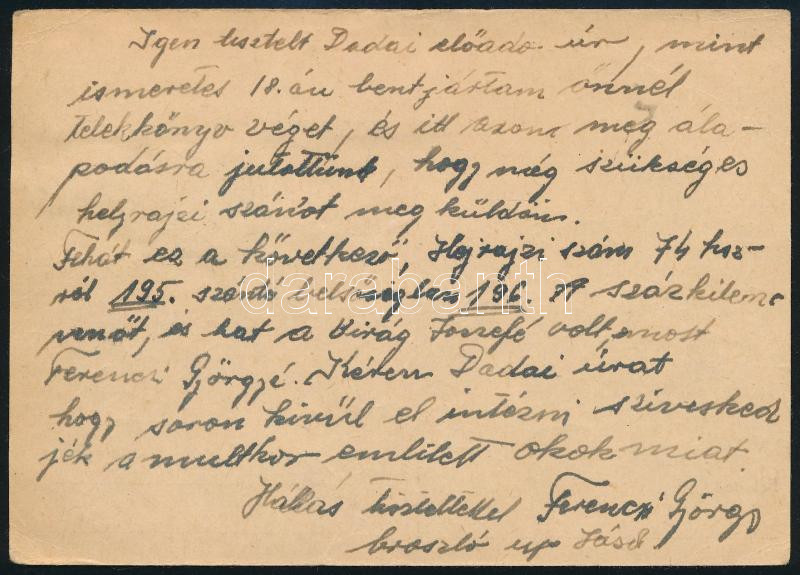 Igen tisztelt Dadai előado úr, mint
ismeretes 18.-án bent jártam önnél
telekkönyv véget, és itt azom meg ála-
podásra jutottunk, hogy még szükséges
helyrajzi számot meg küldöm.
Tehát ez a következő, Hejrajzi szám 74 hsz-
ról 195. számú belsőségben 196. száz kilenc
venöt, és hat a Virág Józsefé volt, most
Ferenczi Györgyé. Kérem Dadai úrat
hogy soron kívül el intézni szíveskod
jék a multkor emlitett okok miat.
Hálás tisztelettel Ferenczi György
up
darabanth